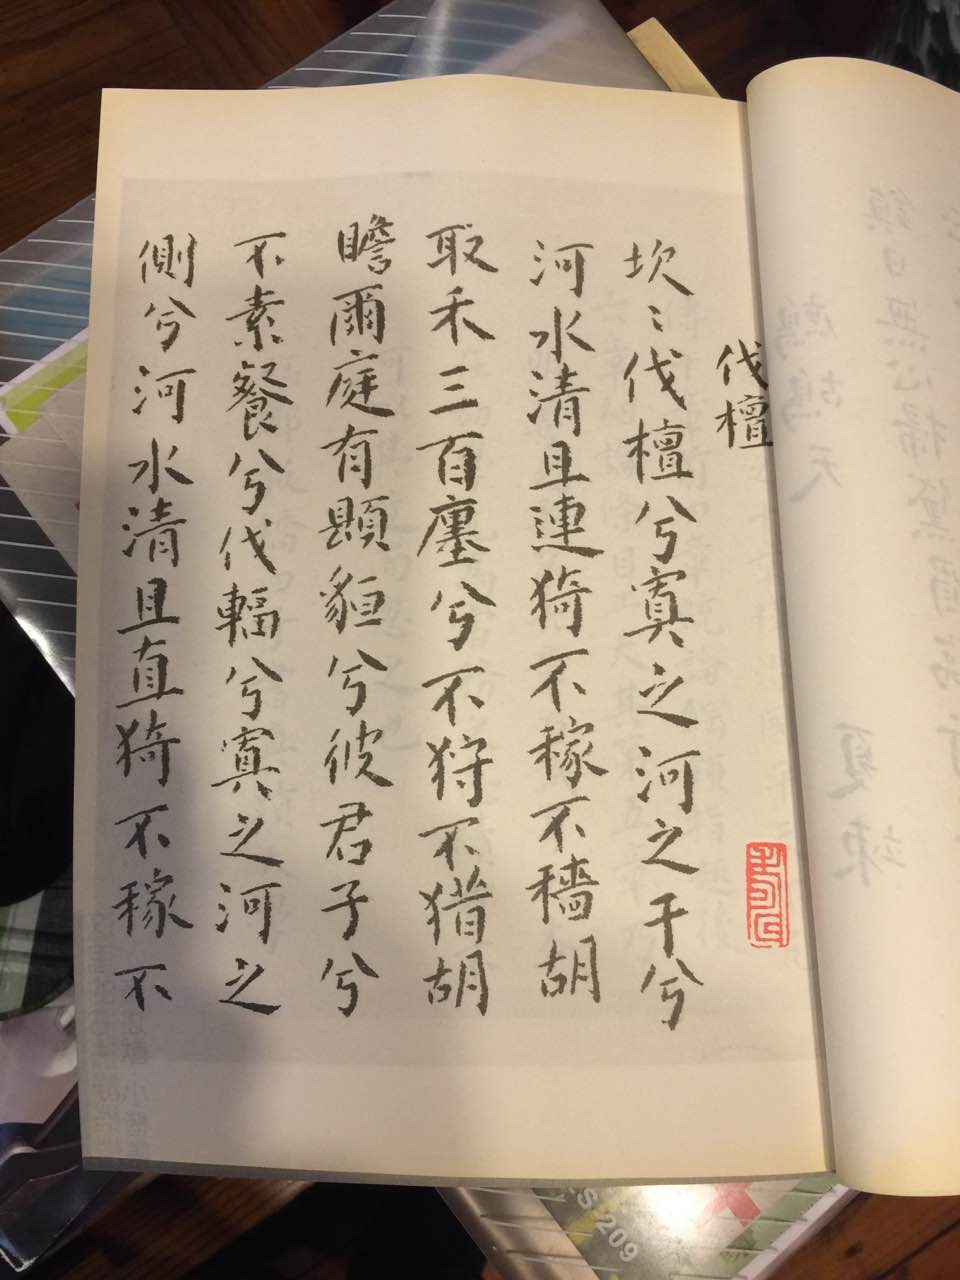 伐檀
坎〻伐檀兮寘之河之干兮
河水清且連猗不稼不穡胡
取禾三百廛兮不狩不猎胡
瞻爾庭有貆兮彼君子兮
不素餐兮伐輻兮寘之河之
側兮河水清且直猗不稼不
S 209